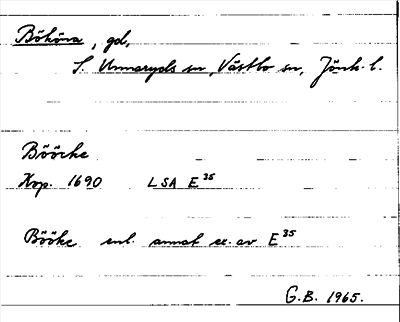 Bököna, gd,
S. Unnaryds sn, Västbo sn, Jönk. l.
Bööche
Kop. 1690 LSA E 35
Bööke enl. annat ex. av E 35
G.B. 1965.